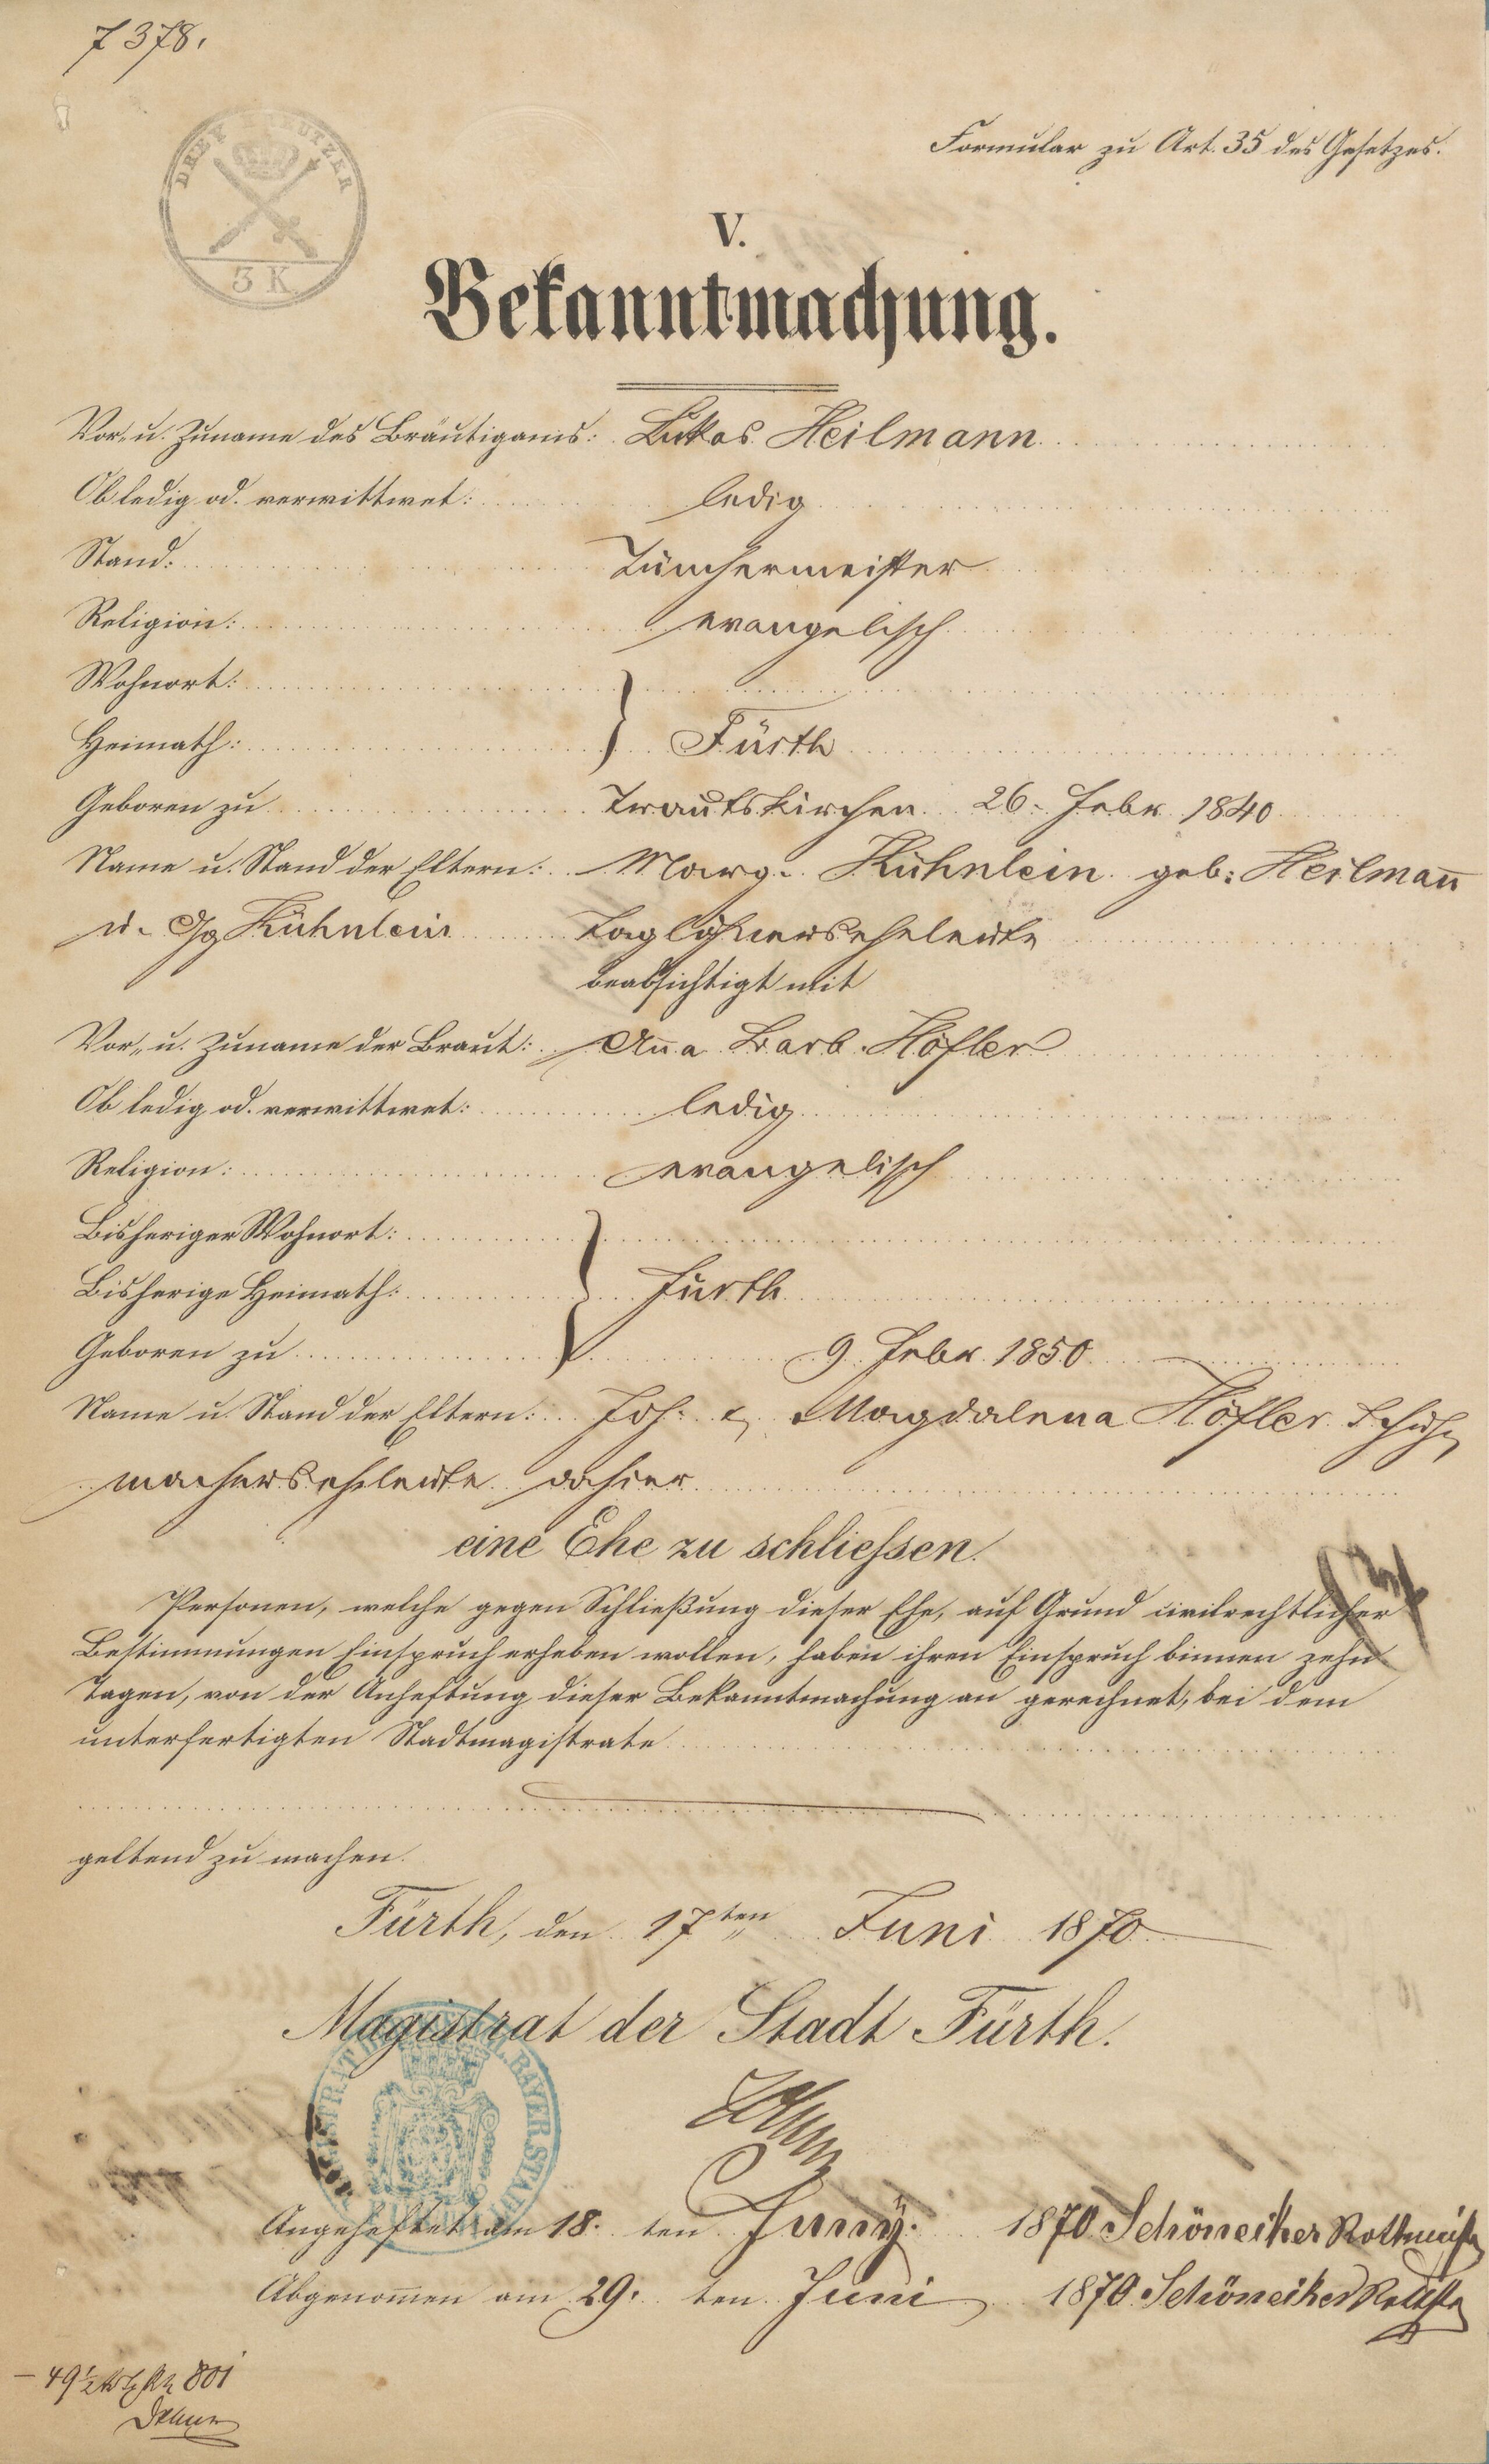 7378.
DREY KREUTZER
3 K
Formular zu Art. 35 des Gesetzes.
V.
Bekanntmachung.
Vor- u. Zuname des Bräutigams: Lukas Heilmann
Ob ledig od. verwittwet: ledig
Stand: Tünchermeister
Religion: evangelisch
Wohnort:
Heimath: } Fürth
Geboren zu Trautskirchen 26. Febr. 1840
Name u. Stand der Eltern: Marg. Kühnlein geb: Heilmañ
u. Gg Kühnlein Taglöhnerseheleute
beabsichtigt mit
Vor- u. Zuname der Braut: Aña Barb. Höfler
Ob ledig od. verwittwet: ledig
Religion: evangelisch
Bisheriger Wohnort:
Bisherige Heimath: } Fürth
Geboren zu 9. Febr. 1850
Name u. Stand der Eltern: Joh. & Magdalena Höfler Schuh-
macherseheleute dahier
eine Ehe zu schliessen.
Personen, welche gegen Schließung dieser Ehe, auf Grund civilrechtlicher
Bestimmungen Einspruch erheben wollen, haben ihren Einspruch binnen zehn
Tagen, von der Anheftung dieser Bekanntmachung an gerechnet, bei dem
unterfertigten Stadtmagistrate
geltend zu machen.
Fürth, den 17ten Juni 1870
Magistrat der Stadt Fürth.
Angeheftet am 18. ten Juny. 1870 Schöneiker Rottmeister
Abgenom̄en am 29. ten Juni 1870. Schöneiker
801